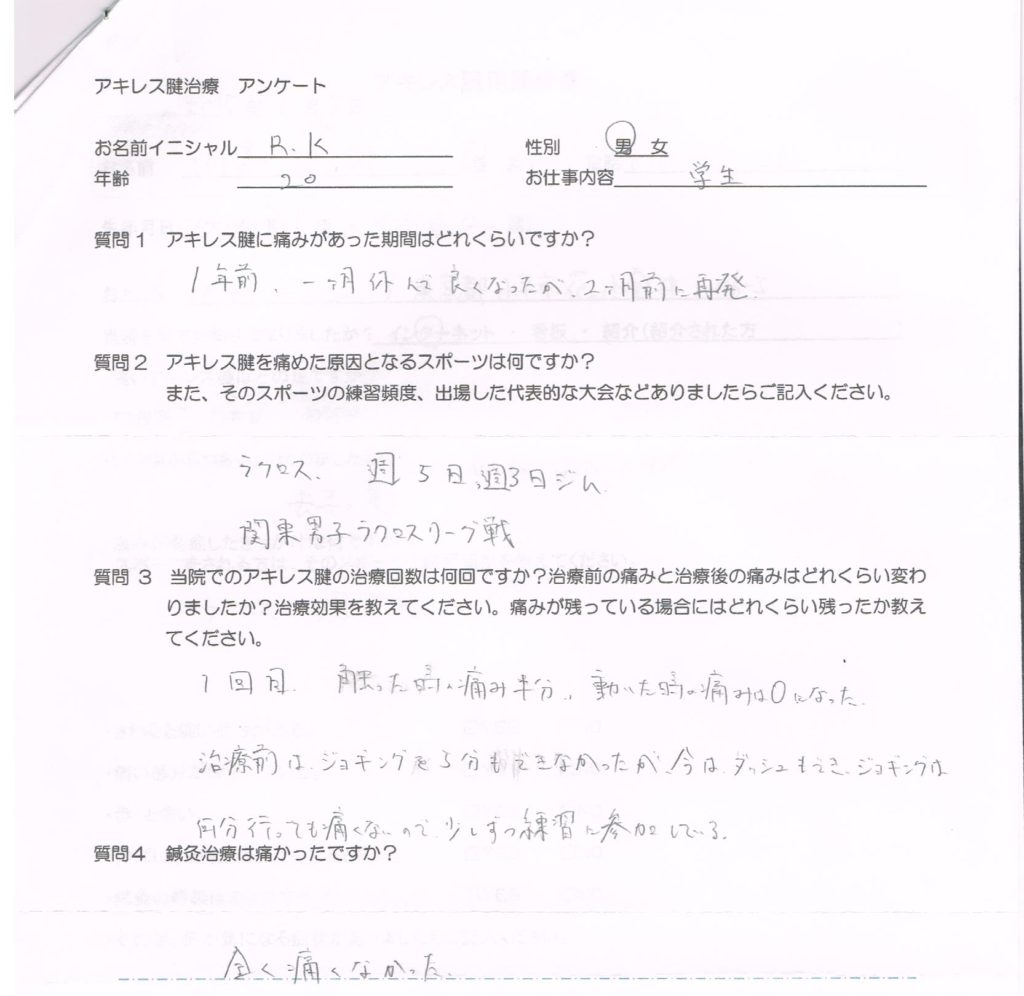 アキレス腱治療　アンケート
お名前イニシャル R.K 性別 男 女
年齢 20 お仕事内容 学生
質問1 アキレス腱に痛みがあった期間はどれくらいですか？
1年前、一ヶ月休んで良くなったが、2ヶ月前に再発
質問2 アキレス腱を痛めた原因となるスポーツは何ですか？
また、そのスポーツの練習頻度、出場した代表的な大会などありましたらご記入ください。
ラクロス、 週5日、週3日ジム
関東男子ラクロスリーグ戦
質問3 当院でのアキレス腱の治療回数は何回ですか？治療前の痛みと治療後の痛みはどれくらい変わ
りましたか？治療効果を教えてください。痛みが残っている場合にはどれくらい残ったか教え
てください。
1回目. 触った時の痛み半分、動いた時の痛みは0になった.
治療前は、ジョギングを5分もできなかったが、今は、ダッシュもでき、ジョギングは
何分行っても痛くないので、少しずつ練習に参加している.
質問4 鍼灸治療は痛かったですか？
全く痛くなかった.